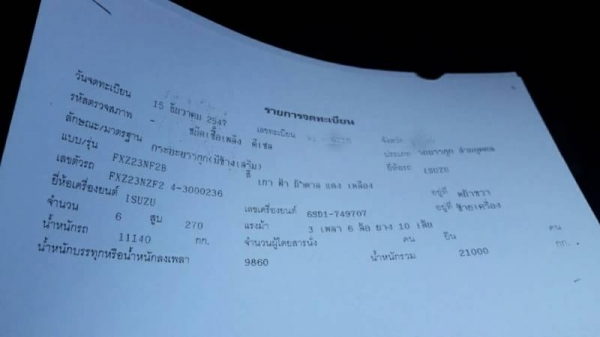 รายการจดทะเบียน
วันจดทะเบียน 15 ธันวาคม 2547 เลขทะเบียน จังหวัด
รหัสตรวจสภาพ - ชนิดเชื้อเพลิง ดีเซล ประเภท ส่วนบุคคล
ลักษณะ/มาตรฐาน กระบะบรรทุก(มีข้างเสริม) ยี่ห้อรถ ISUZU
แบบ/รุ่น FXZ23NF2B สี เทา ฟ้า น้ำตาล แดง เหลือง
เลขตัวรถ FXZ23NZF2 4-3000236 อยู่ที่
ยี่ห้อเครื่องยนต์ ISUZU เลขเครื่องยนต์ 6SD1-749707 อยู่ที่ ซ้ายเครื่อง
จำนวน 6 สูบ 270 แรงม้า 3 เพลา 6 ล้อ ยาง 10 เส้น
น้ำหนักรถ 11140 กก. จำนวนผู้โดยสารนั่ง คน ยืน คน
น้ำหนักบรรทุกหรือน้ำหนักลงเพลา 9860 น้ำหนักรวม 21000 กก.